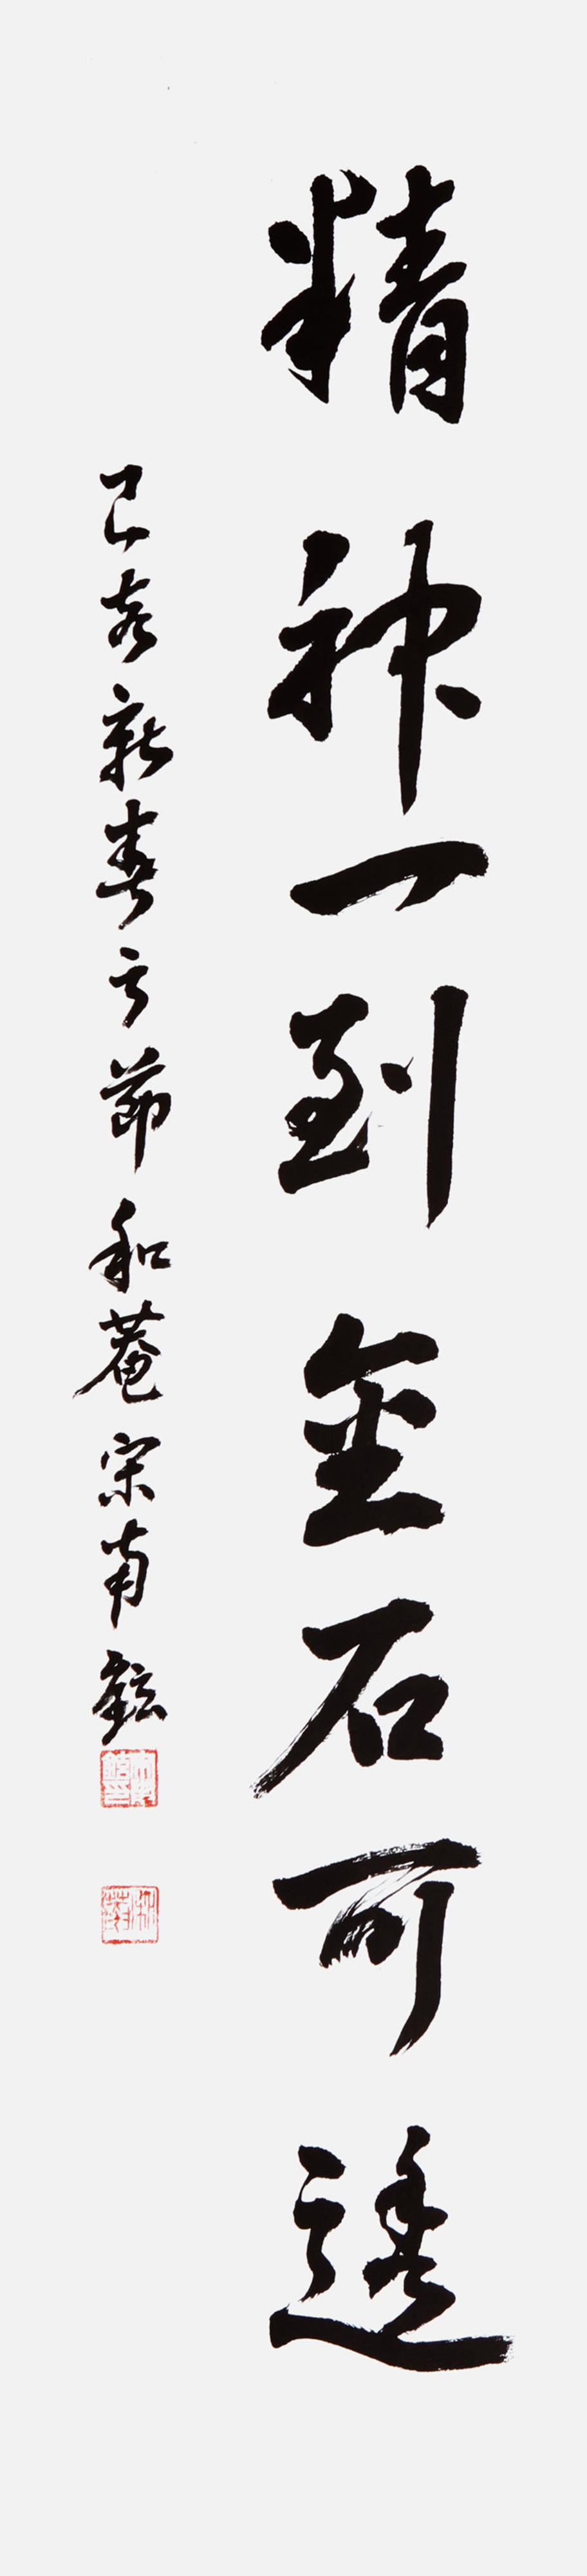 精神一到金石可透
己亥新春之節和菴宋南鉉